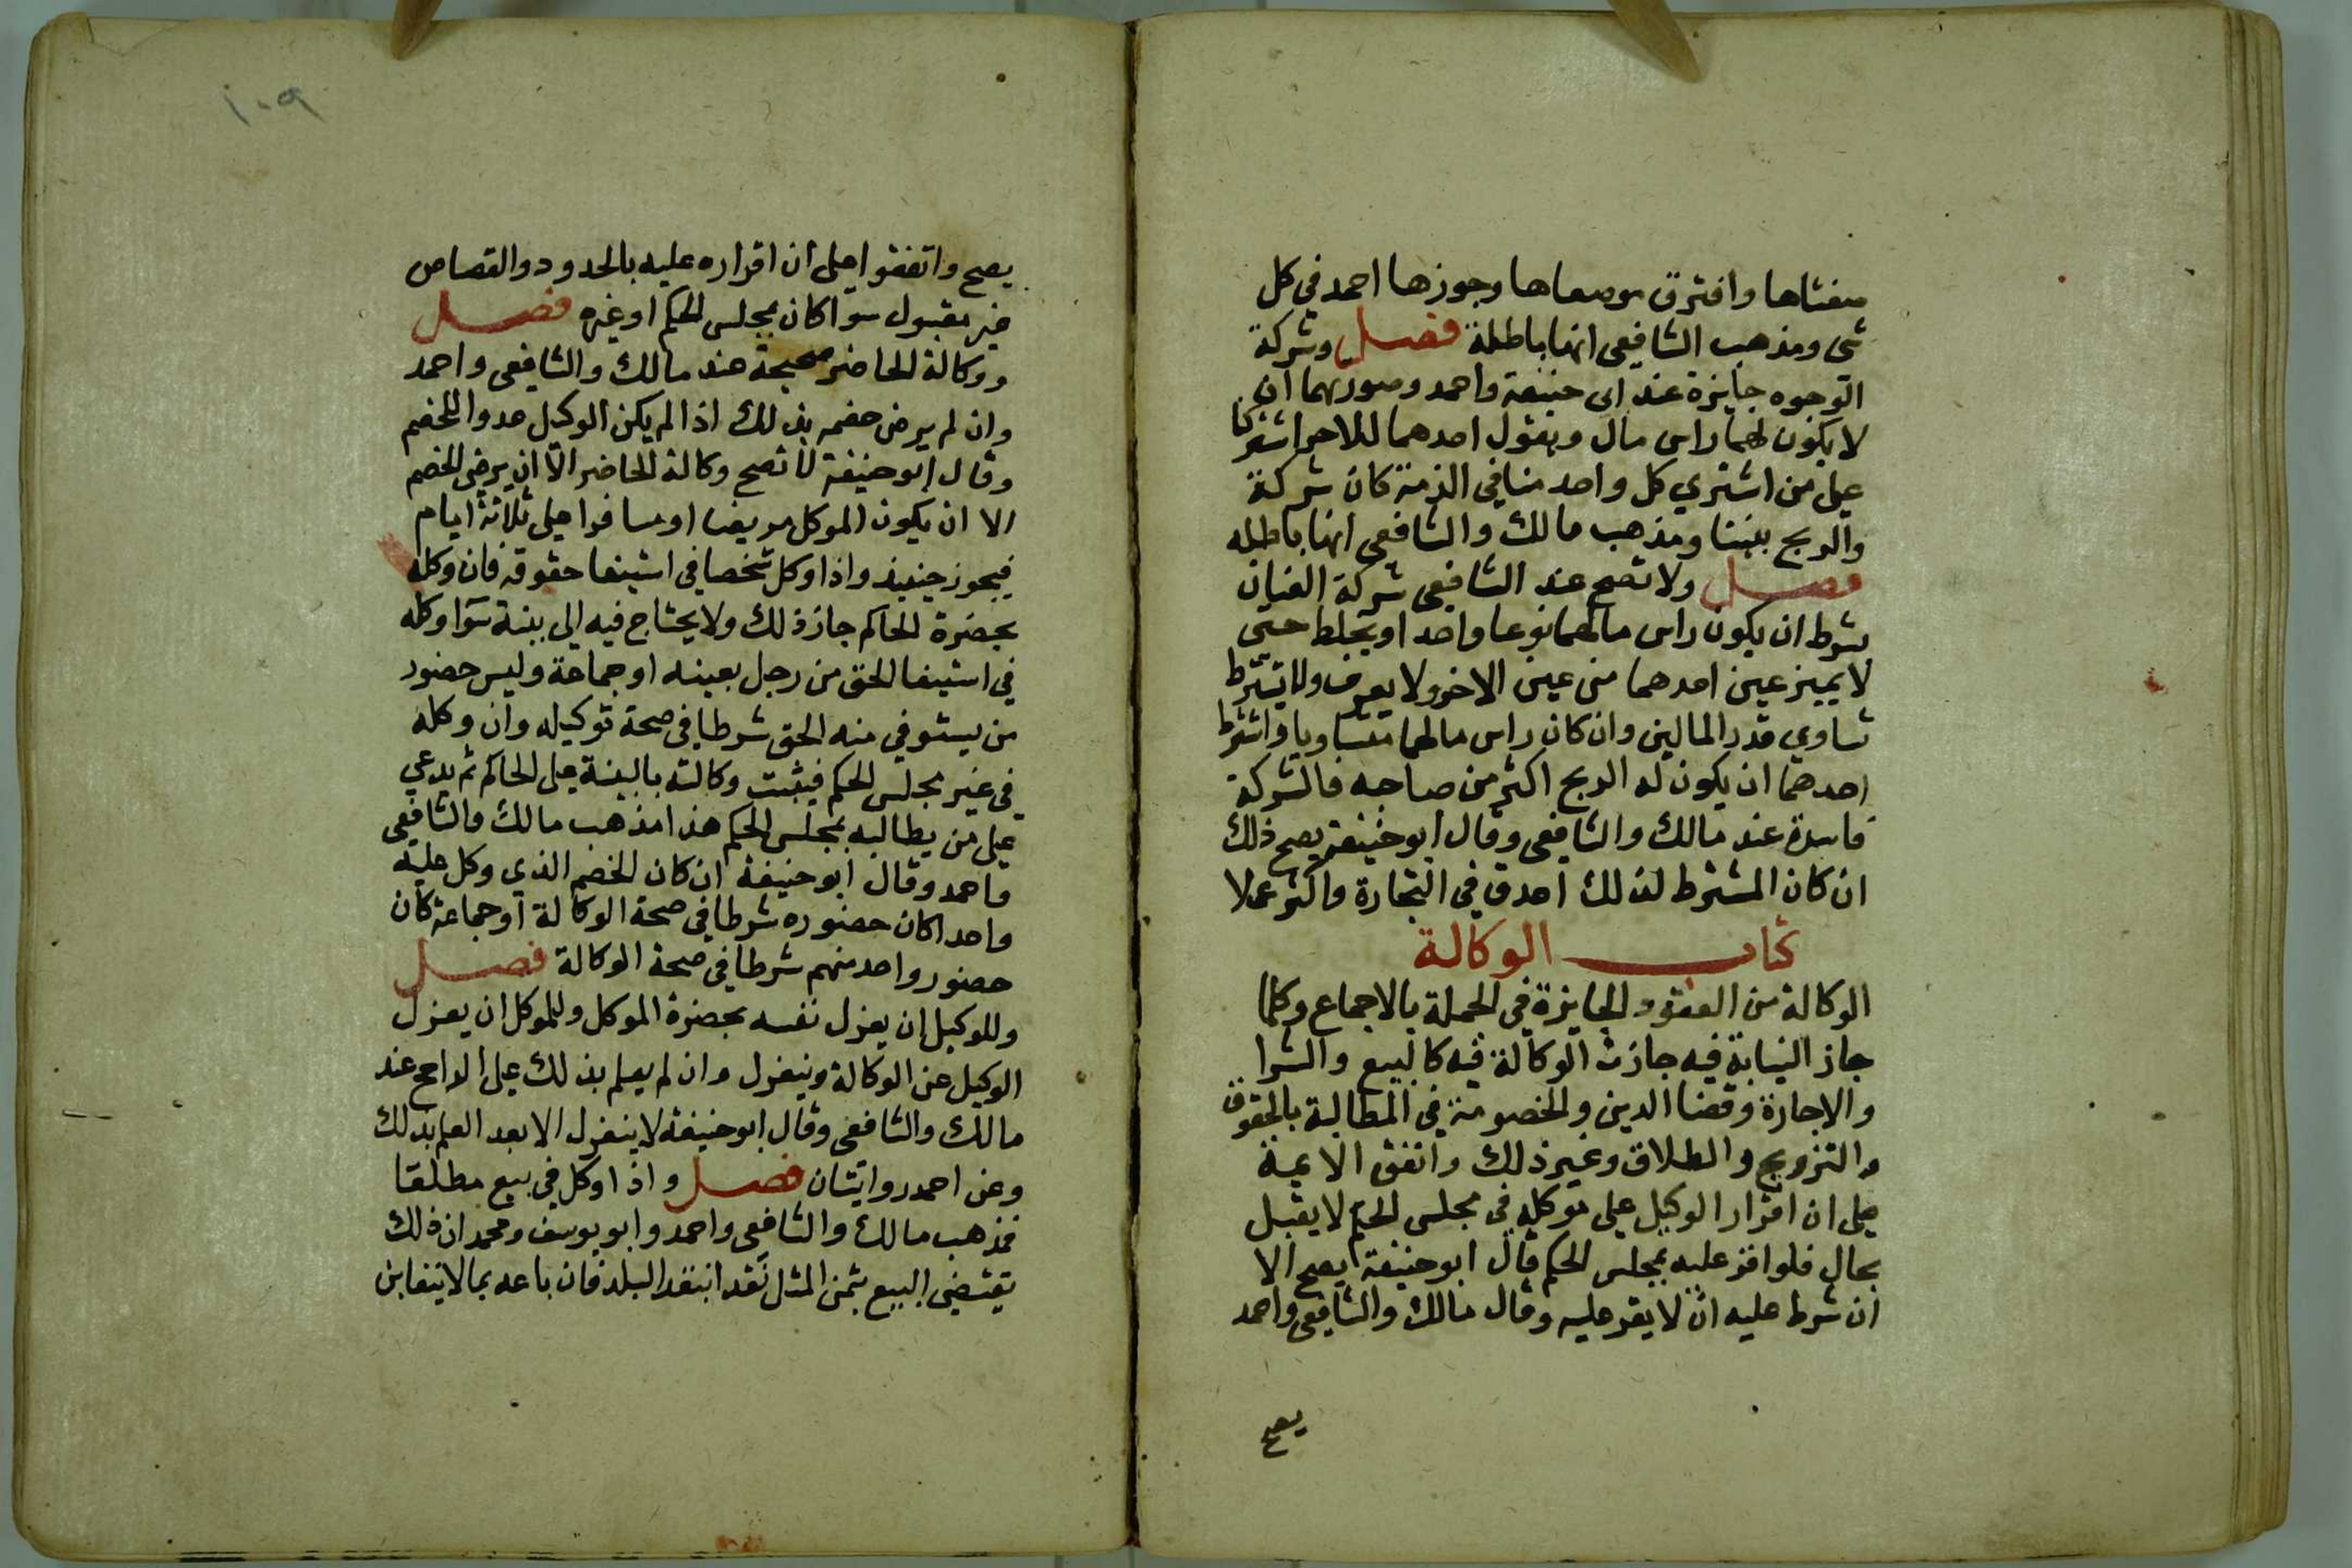 صنعتاها وافترق موضعاها وجوزها احمد في كل
شي ومذهب الشافعي انها باطلة فصل وشركة
الوجوه جايزة عند ابى حنيفة واحمد وصورتهما ان
لا يكون لهما راس مال ويقول احدهما للاخر اشتركنا
على من اشتري كل واحد منا في الذمة كان شركة
والربح بيننا ومذهب مالك والشافعي انها باطله
فصل ولا تصح عند الشافعي شركة العنان
بشرط ان يكون راس مالهما نوعا واحد او يخلط حتى
لا يميز عين احدهما من عين الاخر ولا يعرف ولا يشترط
تساوي قدر المالين وان كان راس مالهما متساويا واشترط
احدهما ان يكون له الربح اكثر من صاحبه فالشركة
فاسدة عند مالك والشافعي وقال ابو حنيفة يصح ذلك
ان كان المشترط لذلك احدق في التجارة واكثر عملا
كتاب الوكالة
الوكالة من العقود الجايزة في الجملة بالاجماع وكلما
جاز النيابة فيه جازت الوكالة فيه كالبيع والشرا
والاجارة وقضا الدين والخصومة في المطالبة بالحقوق
والتزويج والطلاق وغير ذلك واتفق الايمة
على ان اقرار الوكيل على موكله في مجلس الحكم لا يقبل
بحال فلو اقر عليه بمجلس الحكم قال ابو حنيفة يصح الا
ان شرط عليه ان لا يقر عليه وقال مالك والشافعي واحمد
يصح
١٠٩
يصح واتفقوا على ان اقراره عليه بالحدود والقصاص
غير مقبول سوا كان بمجلس الحكم او غيره فصل
ووكالة الحاضر صحيحة عند مالك والشافعي واحمد
وان لم يرض خصمه بذلك اذا لم يكن الوكيل عدوا للخصم
وقال ابو حنيفة لا تصح وكالة الحاضر الا ان يرضى الخصم
الا ان يكون الموكل مريضا او مسافرا على ثلاثة ايام
فيجوز حينيذ واذا وكل شخصا في استيفا حقوقه فان وكله
بحضرة الحاكم جاز ذلك ولا يحتاج فيه الى بينة سوا وكله
في استيفا الحق من رجل بعينه او جماعة وليس حضور
من يستوفي منه الحق شرطا في صحة توكيله وان وكله
في غير مجلس الحكم فيثبت وكالته بالبينة على الحاكم ثم يدعي
على من يطالبه بمجلس الحكم هذا مذهب مالك والشافعي
واحمد وقال ابو حنيفة ان كان الخصم الذي وكل عليه
واحدا كان حضوره شرطا في صحة الوكالة او جماعة كان
حضور واحد منهم شرطا في صحة الوكالة فصل
وللوكيل ان يعزل نفسه بحضرة الموكل وللموكل ان يعزل
الوكيل عن الوكالة وينعزل وان لم يعلم بذلك على الراجح عند
مالك والشافعي وقال ابو حنيفة لا ينعزل الا بعد العلم بذلك
وعن احمد روايتان فصل واذا وكل في بيع مطلقا
فمذهب مالك والشافعي واحمد وابو يوسف ومحمد ان ذلك
يقتضي البيع بثمن المثل نقدا بنقد البلد فان باعه بما لا يتغابن